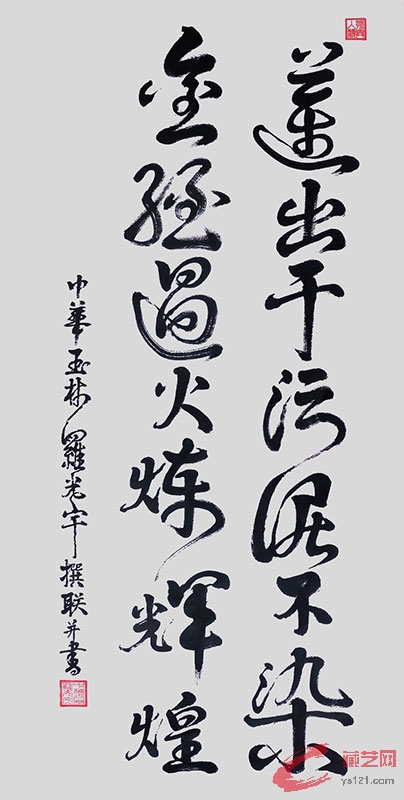 蓮出于污泥不染
金經過火煉輝煌
中華玉林羅光宇撰联并書
藏艺网
ys121.com